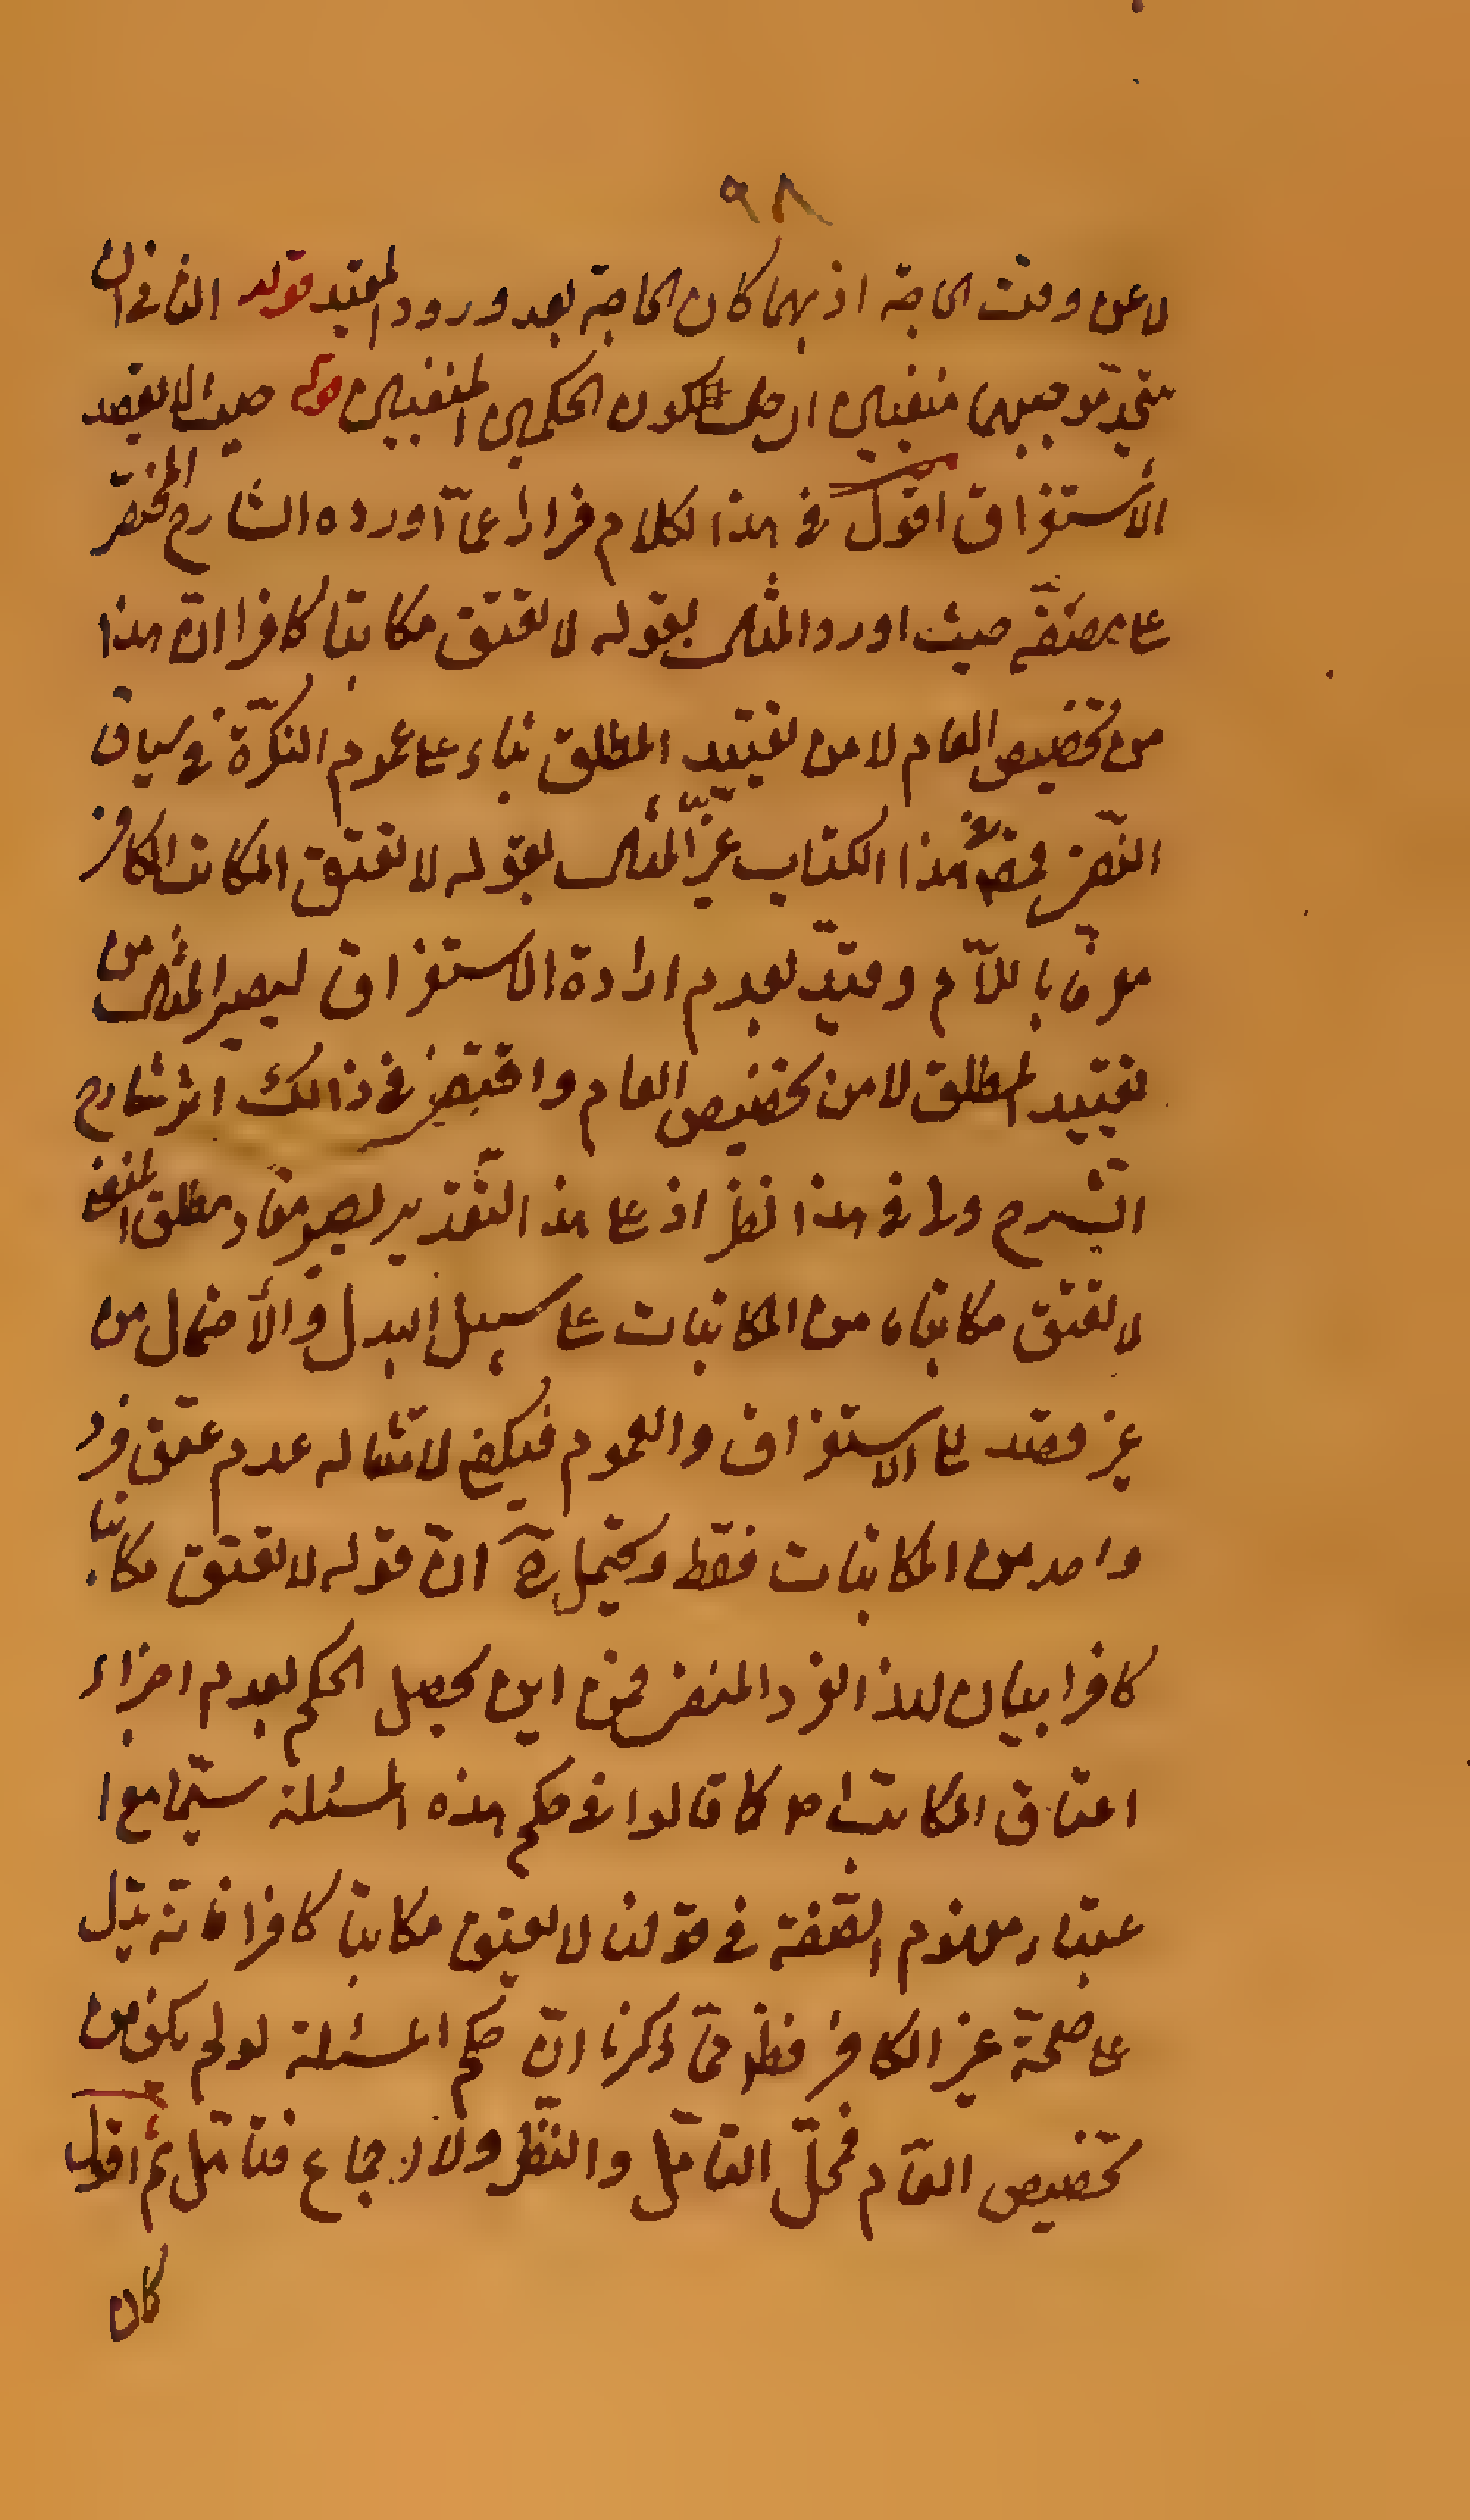 ٩٨
لا عن وقت الحاجة اذ بهما كان الحاجة بعد ورود المقيد قوله الثاني ان
يتحد موجبهما منفيين اي حال كون الحكمين المنفيين قوله حيث لا يقصد
الأستغراق اقول في هذا الكلام فرارا عمّا أورده الشارح المختصر
على مصنفه حيث اورد المثال بقوله لا تعتق مكاتبا كافرا انّ هذا
من تخصيص العام لا من تقييد المطلق بناء على عموم النكرة في سياق
النفي هذا الكتاب غيّر المثال بقوله لا تعتق المكاتب الكافر
معرفا باللّام وقيّد بعدم ارادة الاستغراق ليصير المثال من
تقييد المطلق لا من تخصيص العام واقتفى في ذالك اثر شارح
الشرح ولى في هذا نظر اذ على هذا التّقدير يصير مفاد مطلق المنفي
لا تعتق مكاتبا من المكاتبات على سبيل البدل والأحتمال من
غير قصد الى الاستغراق والعموم فيكفي لامتثاله عدم عتق فرد
واحد من المكاتبات فقط ويحتمل انّ قوله لا تعتق مكاتبا
كافرا بيان لهذا الفرد المنفي فمن اين يحصل الحكم بعدم اجزاء
اعتاق المكاتب كما قالوا في حكم هذه المسئلة سيّما مع ا
عتبار مفهوم الصّفة في قولنا لا تعتق مكاتبا كافرا فانّه يدّل
على صحّة غير الكافر فظهر ممّا ذكرنا انّ حكم المسئلة لو لم يكن من
تخصيص العّام فمحلّ التأمّل والنّظر ولا اجماع فتأمّل ثم اقول
كان